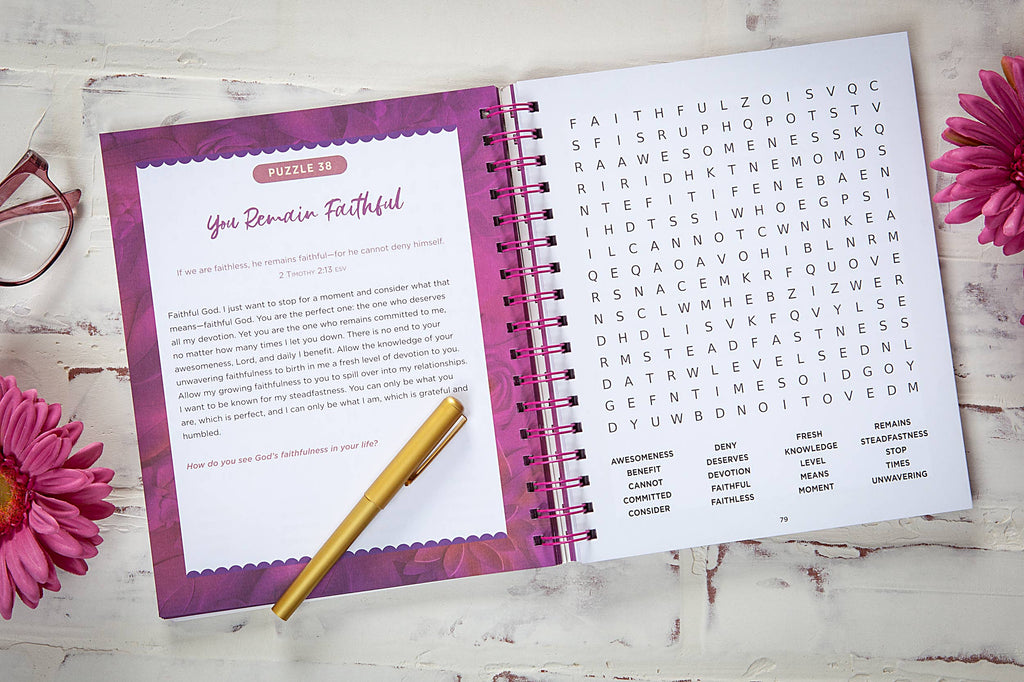 PUZZLE 38
You Remain Faithful
If we are faithless, he remains faithful—for he cannot deny himself.
2 TIMOTHY 2:13 ESV
Faithful God. I just want to stop for a moment and consider what that
means—faithful God. You are the perfect one: the one who deserves
all my devotion. Yet you are the one who remains committed to me,
no matter how many times I let you down. There is no end to your
awesomeness, Lord, and daily I benefit. Allow the knowledge of your
unwavering faithfulness to birth in me a fresh level of devotion to you.
Allow my growing faithfulness to you to spill over into my relationships.
I want to be known for my steadfastness. You can only be what you
are, which is perfect, and I can only be what I am, which is grateful and
humbled.
How do you see God's faithfulness in your life?
F A I T H F U L Z O I S V Q C
S F I S R U P H Q P O T S T V
R A A W E S O M E N E S S K Q
R I R I D H K T N E M O M D S
N T E F I T I F E N E B A E N
I H D T S S I W H O E G P S I
I L C A N N O T C W N N K E A
Q E Q A O A V O H I B L N R M
R S N A C E M K R F Q U O V E
N S C L W M H E B Z I Z W E R
D H D L I S V K F Q V Y L S E
R M S T E A D F A S T N E S S
D A T R W L E V E L S E D N L
G E F N T I M E S O I D G O Y
D Y U W B D N O I T O V E D M
AWESOMENESS
BENEFIT
CANNOT
COMMITTED
CONSIDER
DENY
DESERVES
DEVOTION
FAITHFUL
FAITHLESS
FRESH
KNOWLEDGE
LEVEL
MEANS
MOMENT
REMAINS
STEADFASTNESS
STOP
TIMES
UNWAVERING
79